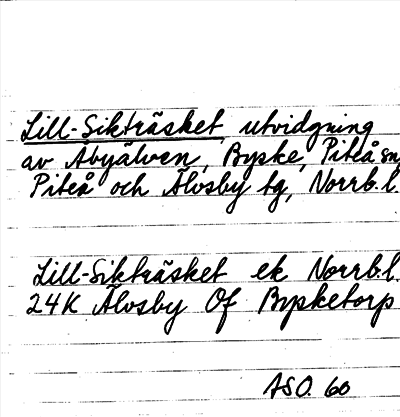 Lill-Sikträsket, utvidgning
av Åbyälven, Byske, Piteå sn,
Piteå och Älvsby tg, Norrb.l.
Lill-Sikträsket ek Norrb.l.
24K Älvsby 0f Bysketorp
ASO. 60